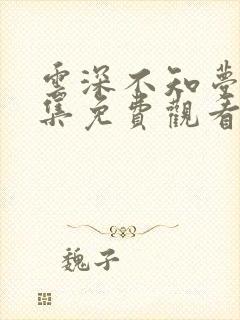 雲深不知夢
集免費觀看
魏子